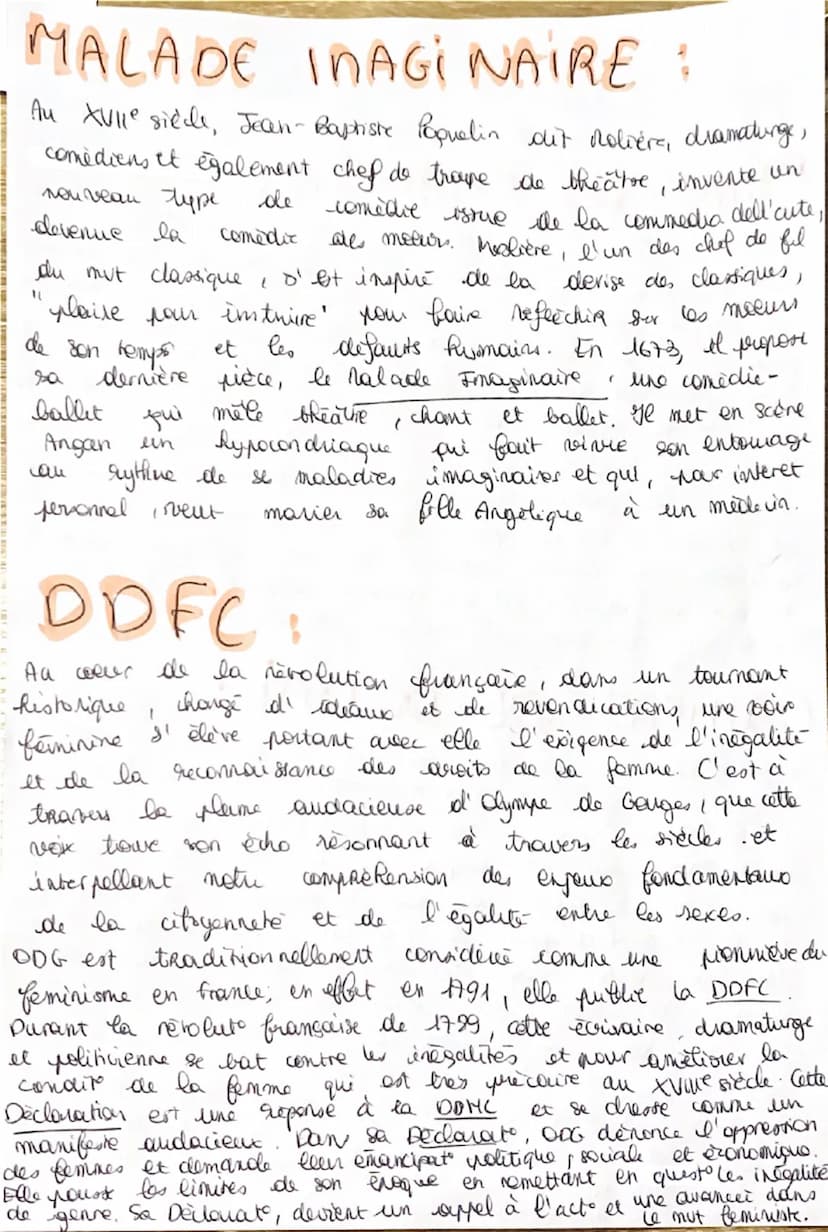 MALADE IMAGINAIRE :
Au XVIIe siècle, Jean-Baptiste Poquelin dit Molière, dramaturge,
comédiens et également chef de troupe de théâtre, invente un
nouveau type de comédie issue de la commedia dell'arte,
devenue la comédie des moeurs. Molière, l'un des chef de fil
du mvt classique, s'est inspiré de la devise des classiques,
"plaire pour instruire" pour faire réfléchir sur les moeurs
de son temps et les défauts humains. En 1673, il propose
sa dernière pièce, le Malade Imaginaire, une comédie-
ballet qui mêle théâtre, chant et ballet. Il met en scène
Argan un hypocondriaque qui fait vivre son entourage
au rythme de se maladies imaginaires et qui, par interet
personnel, veut marier sa fille Angélique à un médecin.
DDFC :
Au coeur de la révolution française, dans un tournant
historique, chargé d'idéaux et de revendications, une voix
féminine s'élève portant avec elle l'exigence de l'inégalité
et de la reconnaissance des droits de la femme. C'est à
travers la plume audacieuse d'Olympe de Gouges, que cette
voix trouve son écho résonnant à travers les siècles et
interpellant notre compréhension des enjeux fondamentaux
de la citoyenneté et de l'égalité entre les sexes.
ODG est traditionnellement considérée comme une pionnière du
féminisme en france; en effet en 1791, elle publie la DDFC.
Durant la révoluto française de 1799, cette écrivaine, dramaturge
et politicienne se bat contre les inégalités et pour améliorer la
condito de la femme qui est très précaire au XVIIIe siècle. Cette
Déclaration est une réponse à la DDHC et se dresse comme un
manifeste audacieux. Dans sa Déclarato, ODG dénonce l'oppression
des femmes et demande leur émancipato politique, sociale et économique.
Elle pousse les limites de son époque en remettant en questo les inégalité
de genre. Sa Déclarato, devient un appel à l'acto et une avancée dans
le mvt féministe.